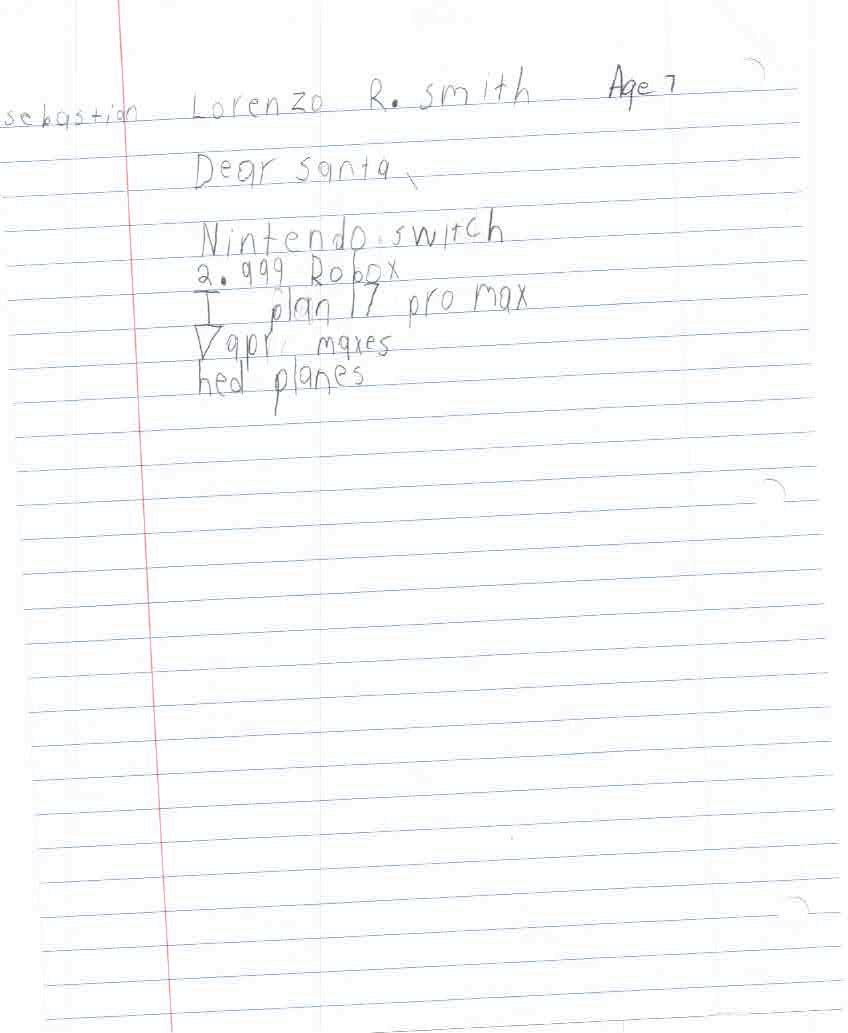 sebastion Lorenzo R. smith Age 7
Dear santa,
Nintendo switch
2.999 Robox
I plan 17 pro max
Vapr maxes
hed planes